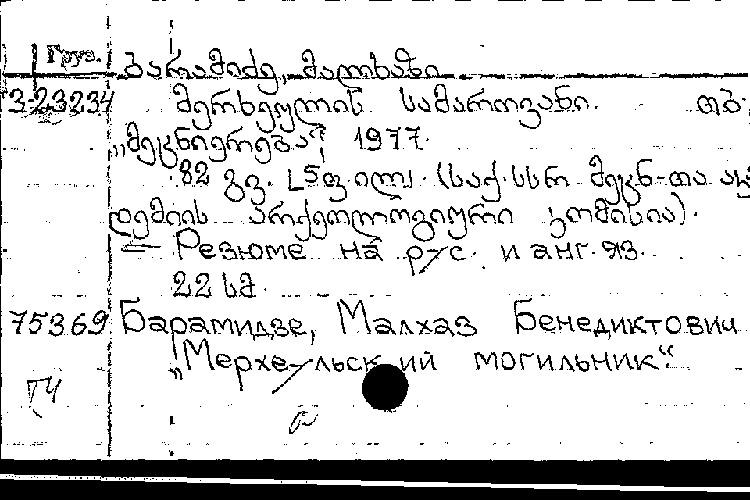 Груз. ბარამიძე, მალხაზი
3-23234 მერხეულის სამაროვანი. თბ.,
„მეცნიერება“, 1977.
82 გვ. [5ფ.ილ]. (საქ. სსრ მეცნ-თა აკა
დემიის არქეოლოგიური კომისია).
= Резюме на рус. и анг. яз.
22 სმ.
75369 Барамидзе, Малхаз Бенедиктович
„Мерхеульский могильник“